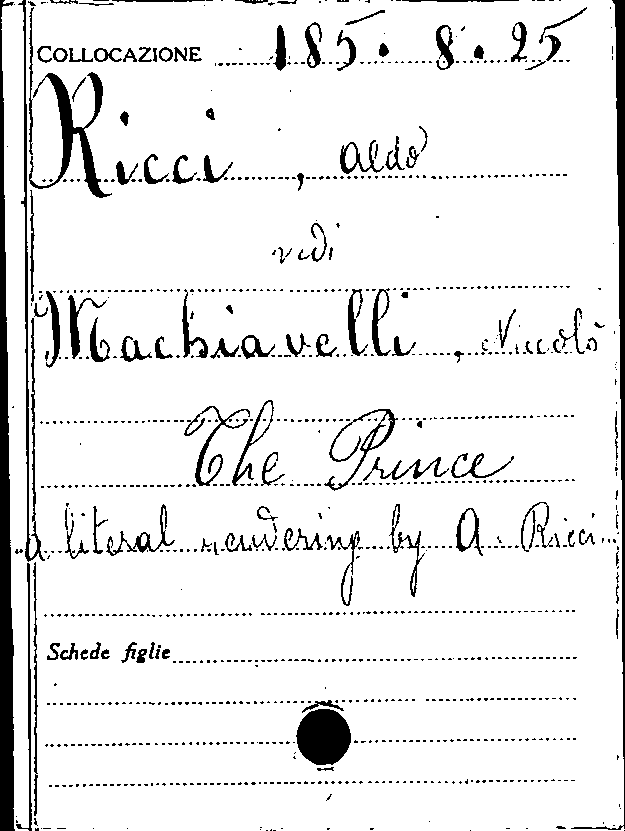 COLLOCAZIONE 185. 8. 25
Ricci, Aldo
vedi
Machiavelli, Niccolò
The Prince
a literal rendering by A. Ricci
Schede figlie